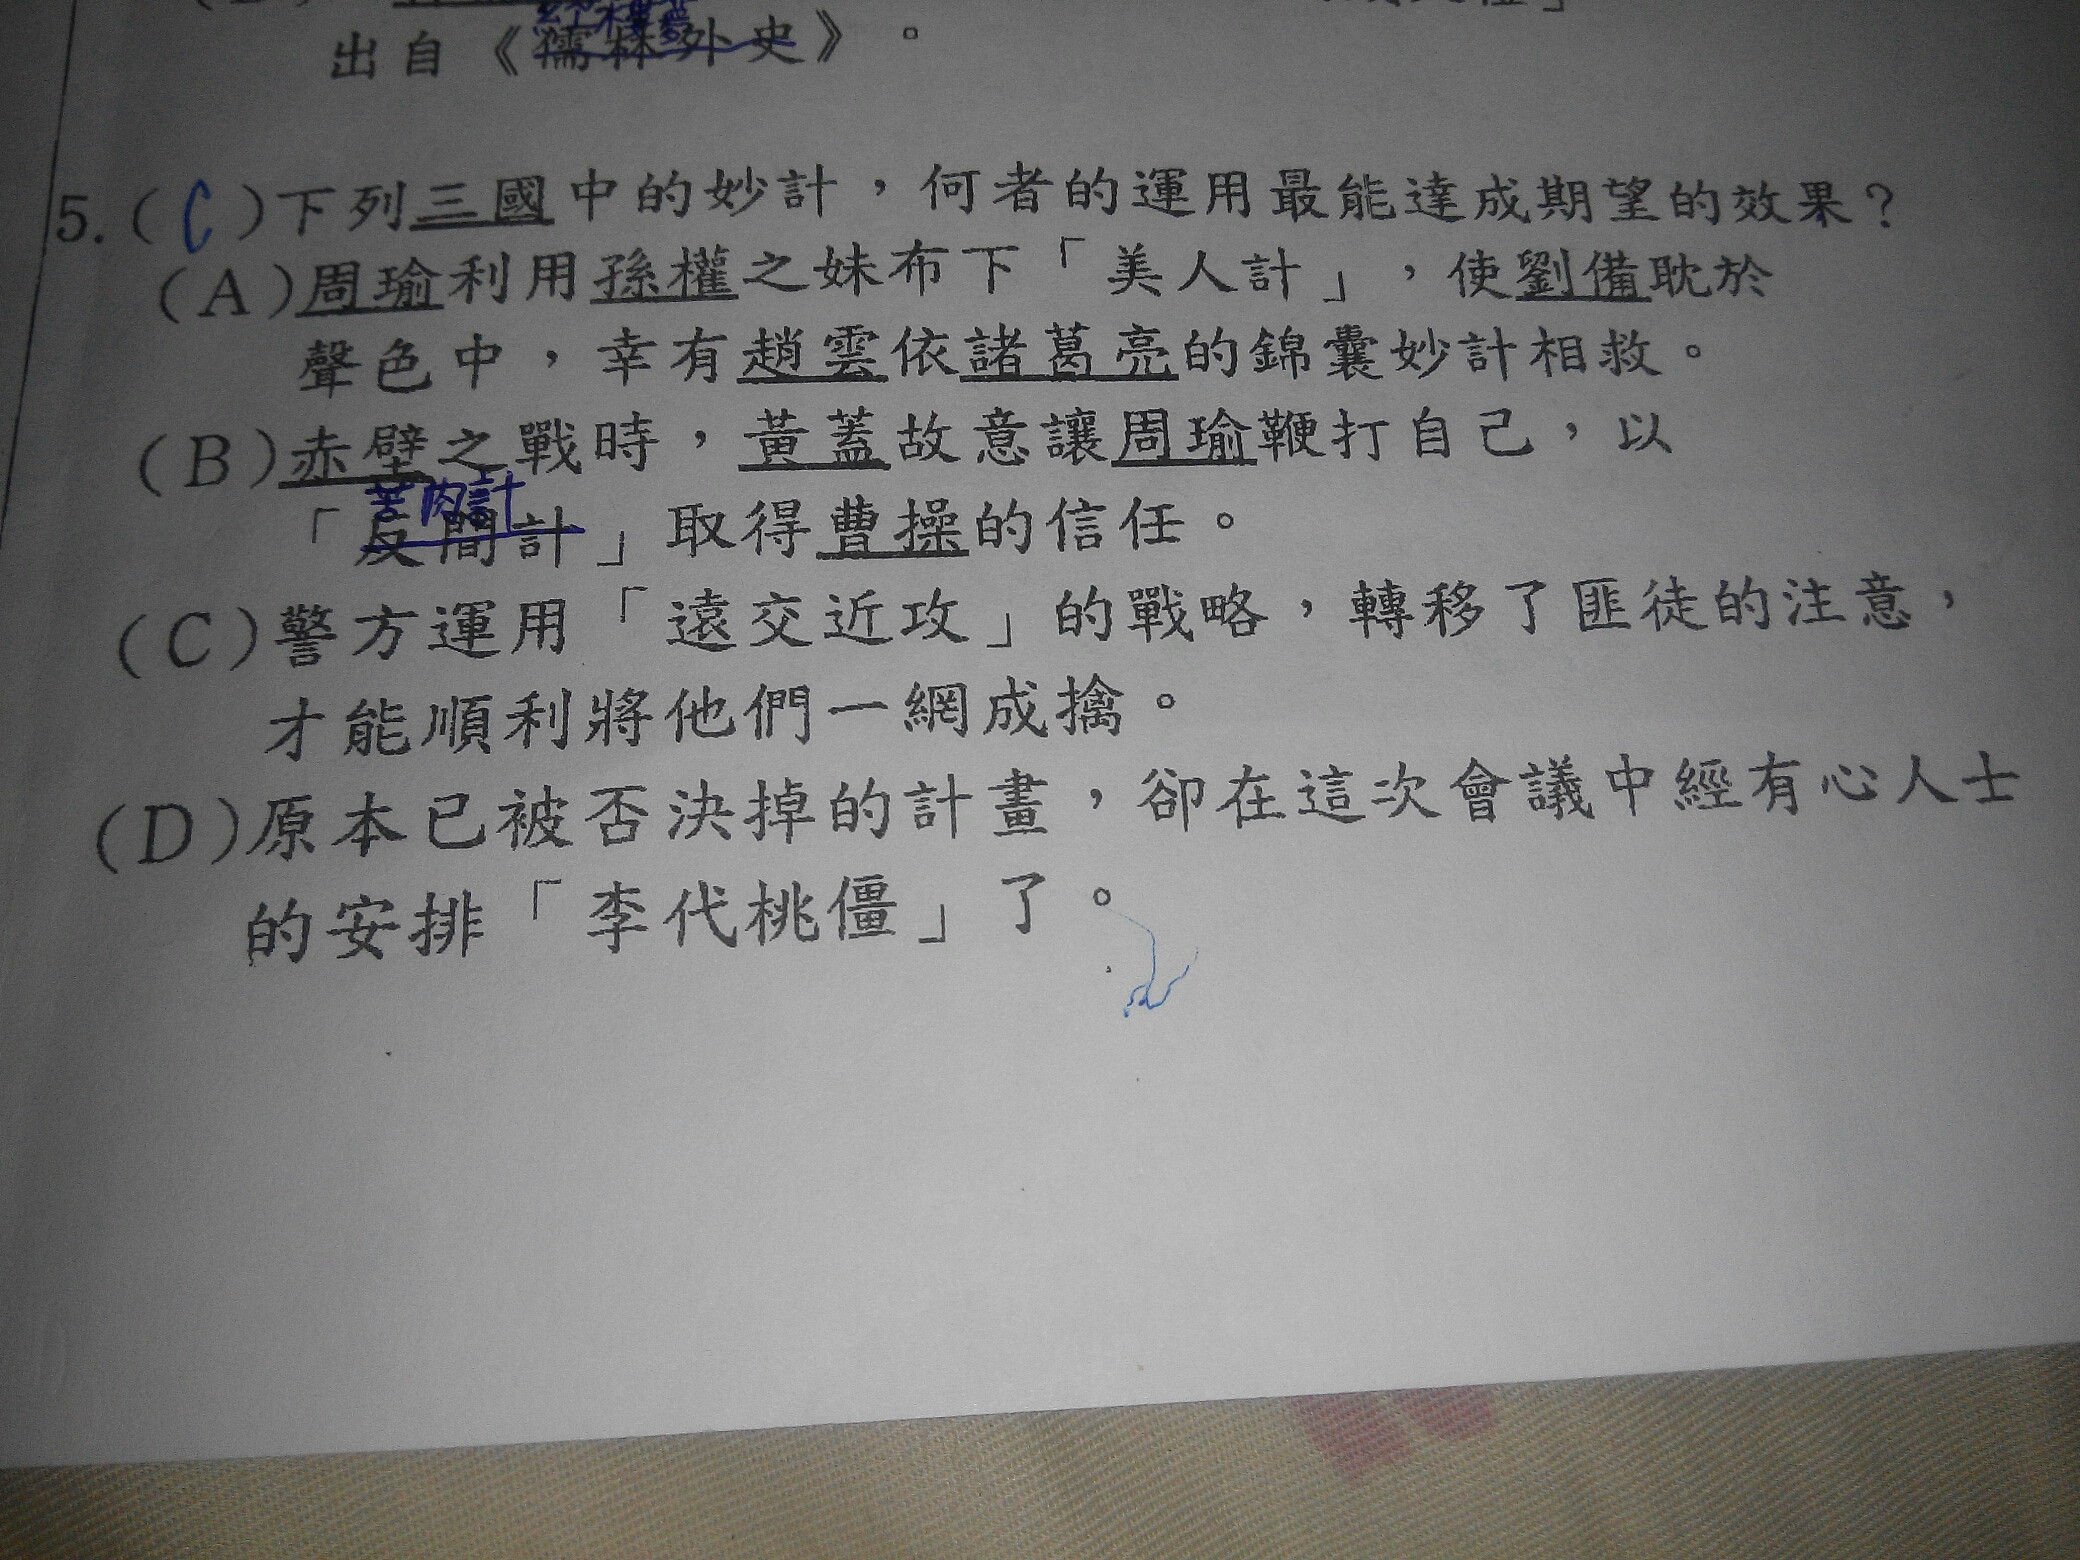 紅樓夢
出自《儒林外史》。
5.(C)下列三國中的妙計，何者的運用最能達成期望的效果？
(A)周瑜利用孫權之妹布下「美人計」，使劉備耽於
聲色中，幸有趙雲依諸葛亮的錦囊妙計相救。
(B)赤壁之戰時，黃蓋故意讓周瑜鞭打自己，以
苦肉計
「反間計」取得曹操的信任。
(C)警方運用「遠交近攻」的戰略，轉移了匪徒的注意，
才能順利將他們一網成擒。
(D)原本已被否決掉的計畫，卻在這次會議中經有心人士
的安排「李代桃僵」了。